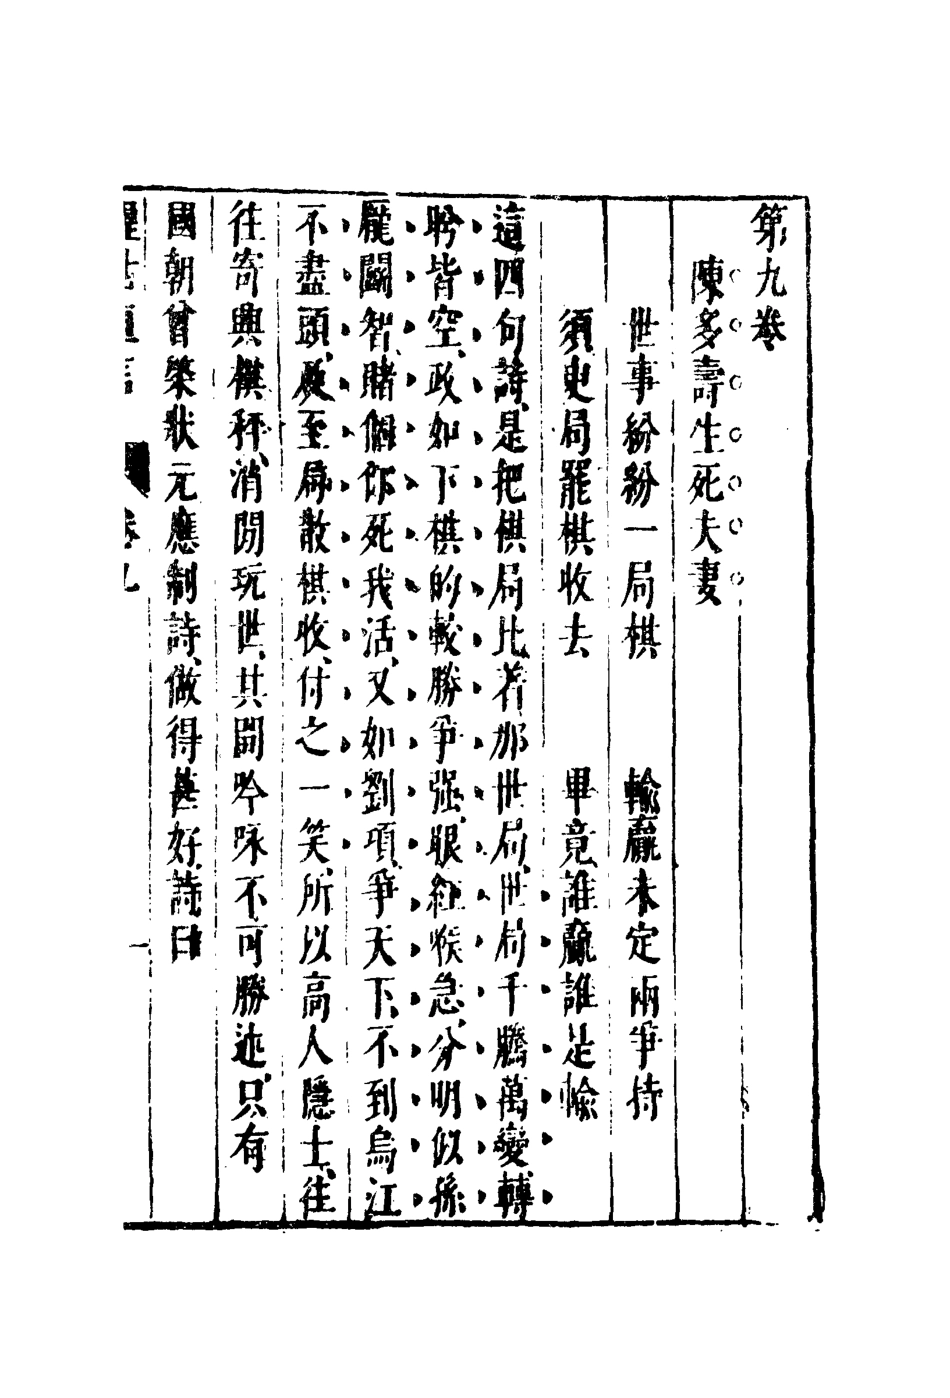 第九卷
陳多壽生死夫妻
世事紛紛一局棋　輸贏未定兩爭持
須臾局罷棋收去　畢竟誰贏誰是輸
這四句詩、是把棋局比著那世局、世局千騰萬變、轉
盻皆空、政如下棋的較勝爭强、眼紅喉急、分明似孫
龐鬬智、賭個你死我活、又如劉項爭天下、不到烏江
不盡頭、及至局散棋收、付之一笑、所以高人隱士、往
往寄興棋枰、消閒玩世、其間吟咏、不可勝述、只有
國朝曾棨狀元應制詩、做得甚好、詩曰
醒世恒言　卷九　一